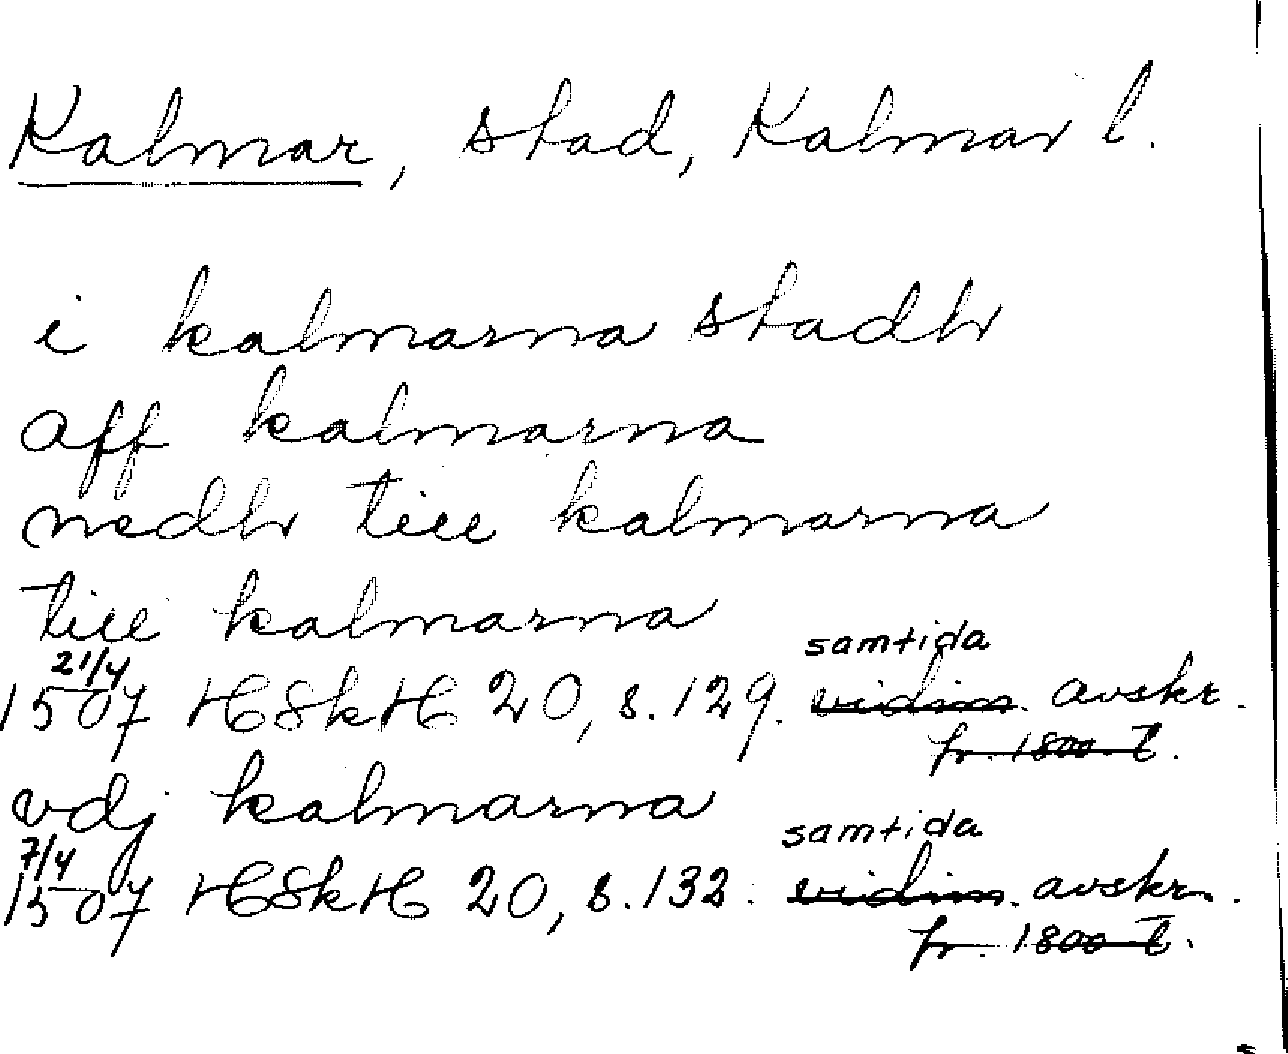 Kalmar, stad, Kalmar l.
i kalmarna stadh
aff kalmarna
nedh till kalmarna
till kalmarna
21/4
samtida
1507 HSkH 20, s. 129. vidim. avskr.
fr. 1800-t.
vdj kalmarna
7/4
samtida
1507 HSkH 20, s. 132. vidim. avskr.
fr. 1800-t.